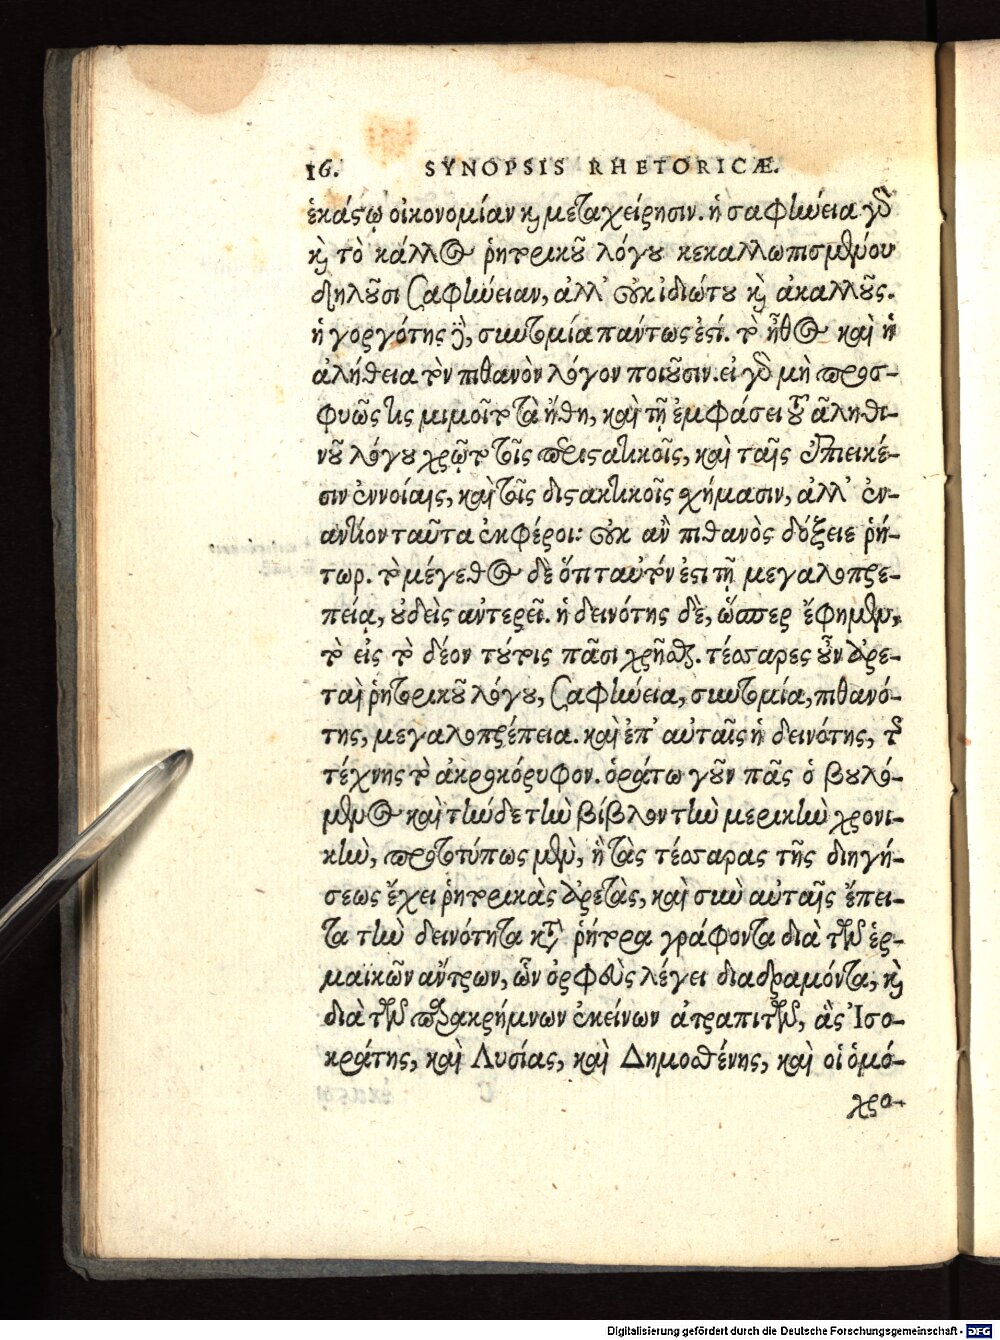 16. SYNOPSIS RHETORICÆ.
ἑκάστῳ οἰκονομίαν καὶ μεταχείρησιν. ἡ σαφήνεια γὸ
καὶ τὸ κάλλος ῥητορικοῦ λόγου κεκαλλωπισμένου
δηλοῦσι σαφήνειαν, ἀλλ' οὐκ ἰδιώτου καὶ ἀκαλλοῦς.
ἡ γοργότης δὲ, συντομία παντως ἐστί. τὸ ἦθος καὶ ἡ
ἀλήθεια τὸν πιθανὸν λόγον ποιοῦσιν. εἰ γὸ μὴ προσ-
φυῶς τις μιμοῖτο τὰ ἤθη, καὶ τῇ ἐμφάσει τοῦ ἀληθι-
νοῦ λόγου χρῷτο τοῖς προστατικοῖς, καὶ ταῖς ἐπιεικέ-
σιν ἐννοίαις, καὶ τοῖς διστακτικοῖς σχήμασιν, ἀλλ' ἐν-
αντίον ταῦτα ἐκφέροι: οὐκ ἂν πιθανὸς δόξειε ῥή-
τωρ. τὸ μέγεθος δὲ ὅτι ταυτόν ἐστι τῇ μεγαλοπρε-
πείᾳ, οὐδεὶς ἀντερεῖ. ἡ δεινότης δὲ, ὥσπερ ἔφημεν,
τὸ εἰς τὸ δέον τούτοις πᾶσι χρῆσθαι. τέσσαρες οὖν ἀρε-
ταὶ ῥητορικοῦ λόγου, σαφήνεια, συντομία, πιθανό-
της, μεγαλοπρέπεια. καὶ ἐπ' αὐταῖς ἡ δεινότης, τῆς
τέχνης τὸ ἀκροκόρυφον. ὁράτω γοῦν πᾶς ὁ βουλό-
μενος καὶ τήνδε τὴν βίβλον τὴν μερικὴν χρονι-
κὴν, πρωτοτύπως μὲν, ἢ τὰς τέσσαρας τῆς διηγή-
σεως ἔχει ῥητορικὰς ἀρετὰς, καὶ σὺν αὐταῖς ἔπει-
τα τὴν δεινότητα κατὰ ῥήτορα γράφοντα διὰ τῶν ἑρ-
μαϊκῶν ἄντρων, ὧν ὀρφεὺς λέγει διαδραμόντα, καὶ
διὰ τῶν παρακρήμνων ἐκείνων ἀτραπιτῶν, ἃς Ἰσο-
κράτης, καὶ Λυσίας, καὶ Δημοσθένης, καὶ οἱ ὁμό-
χρο-
Digitalisierung gefördert durch die Deutsche Forschungsgemeinschaft - DFG